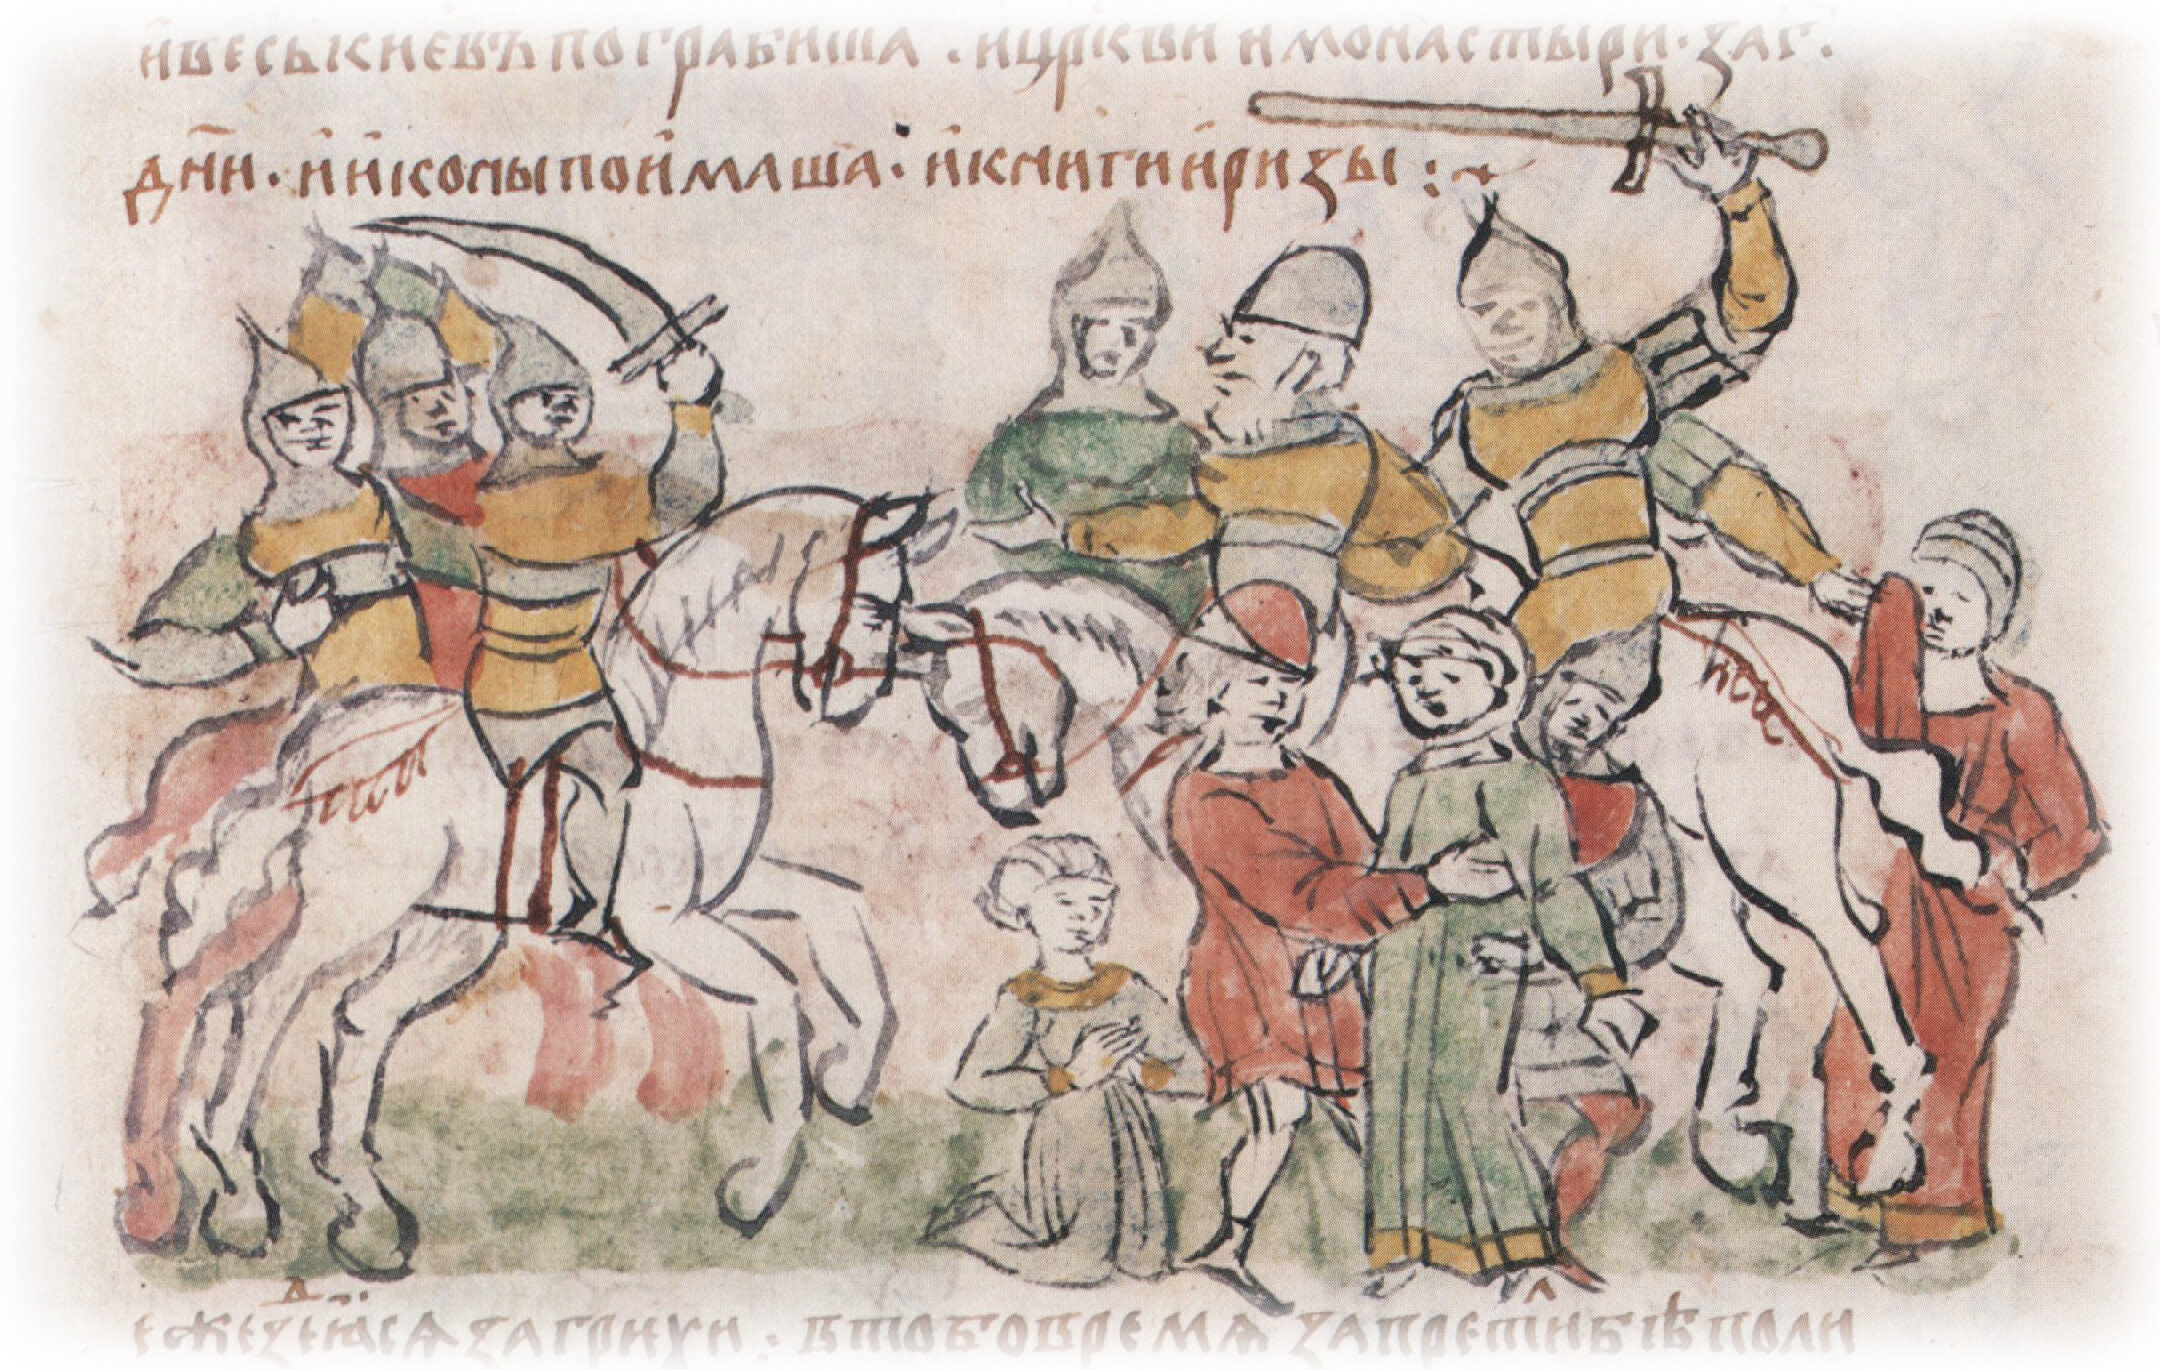 ивесь киевъ пограбиша · и црк҃ви и монастыри · за г҃ ·
дн҃и · и иконы поимаша · и книги и ризы :~
еже деюся за грѣхи · в то бо времѧ запретилъ бѣ поли